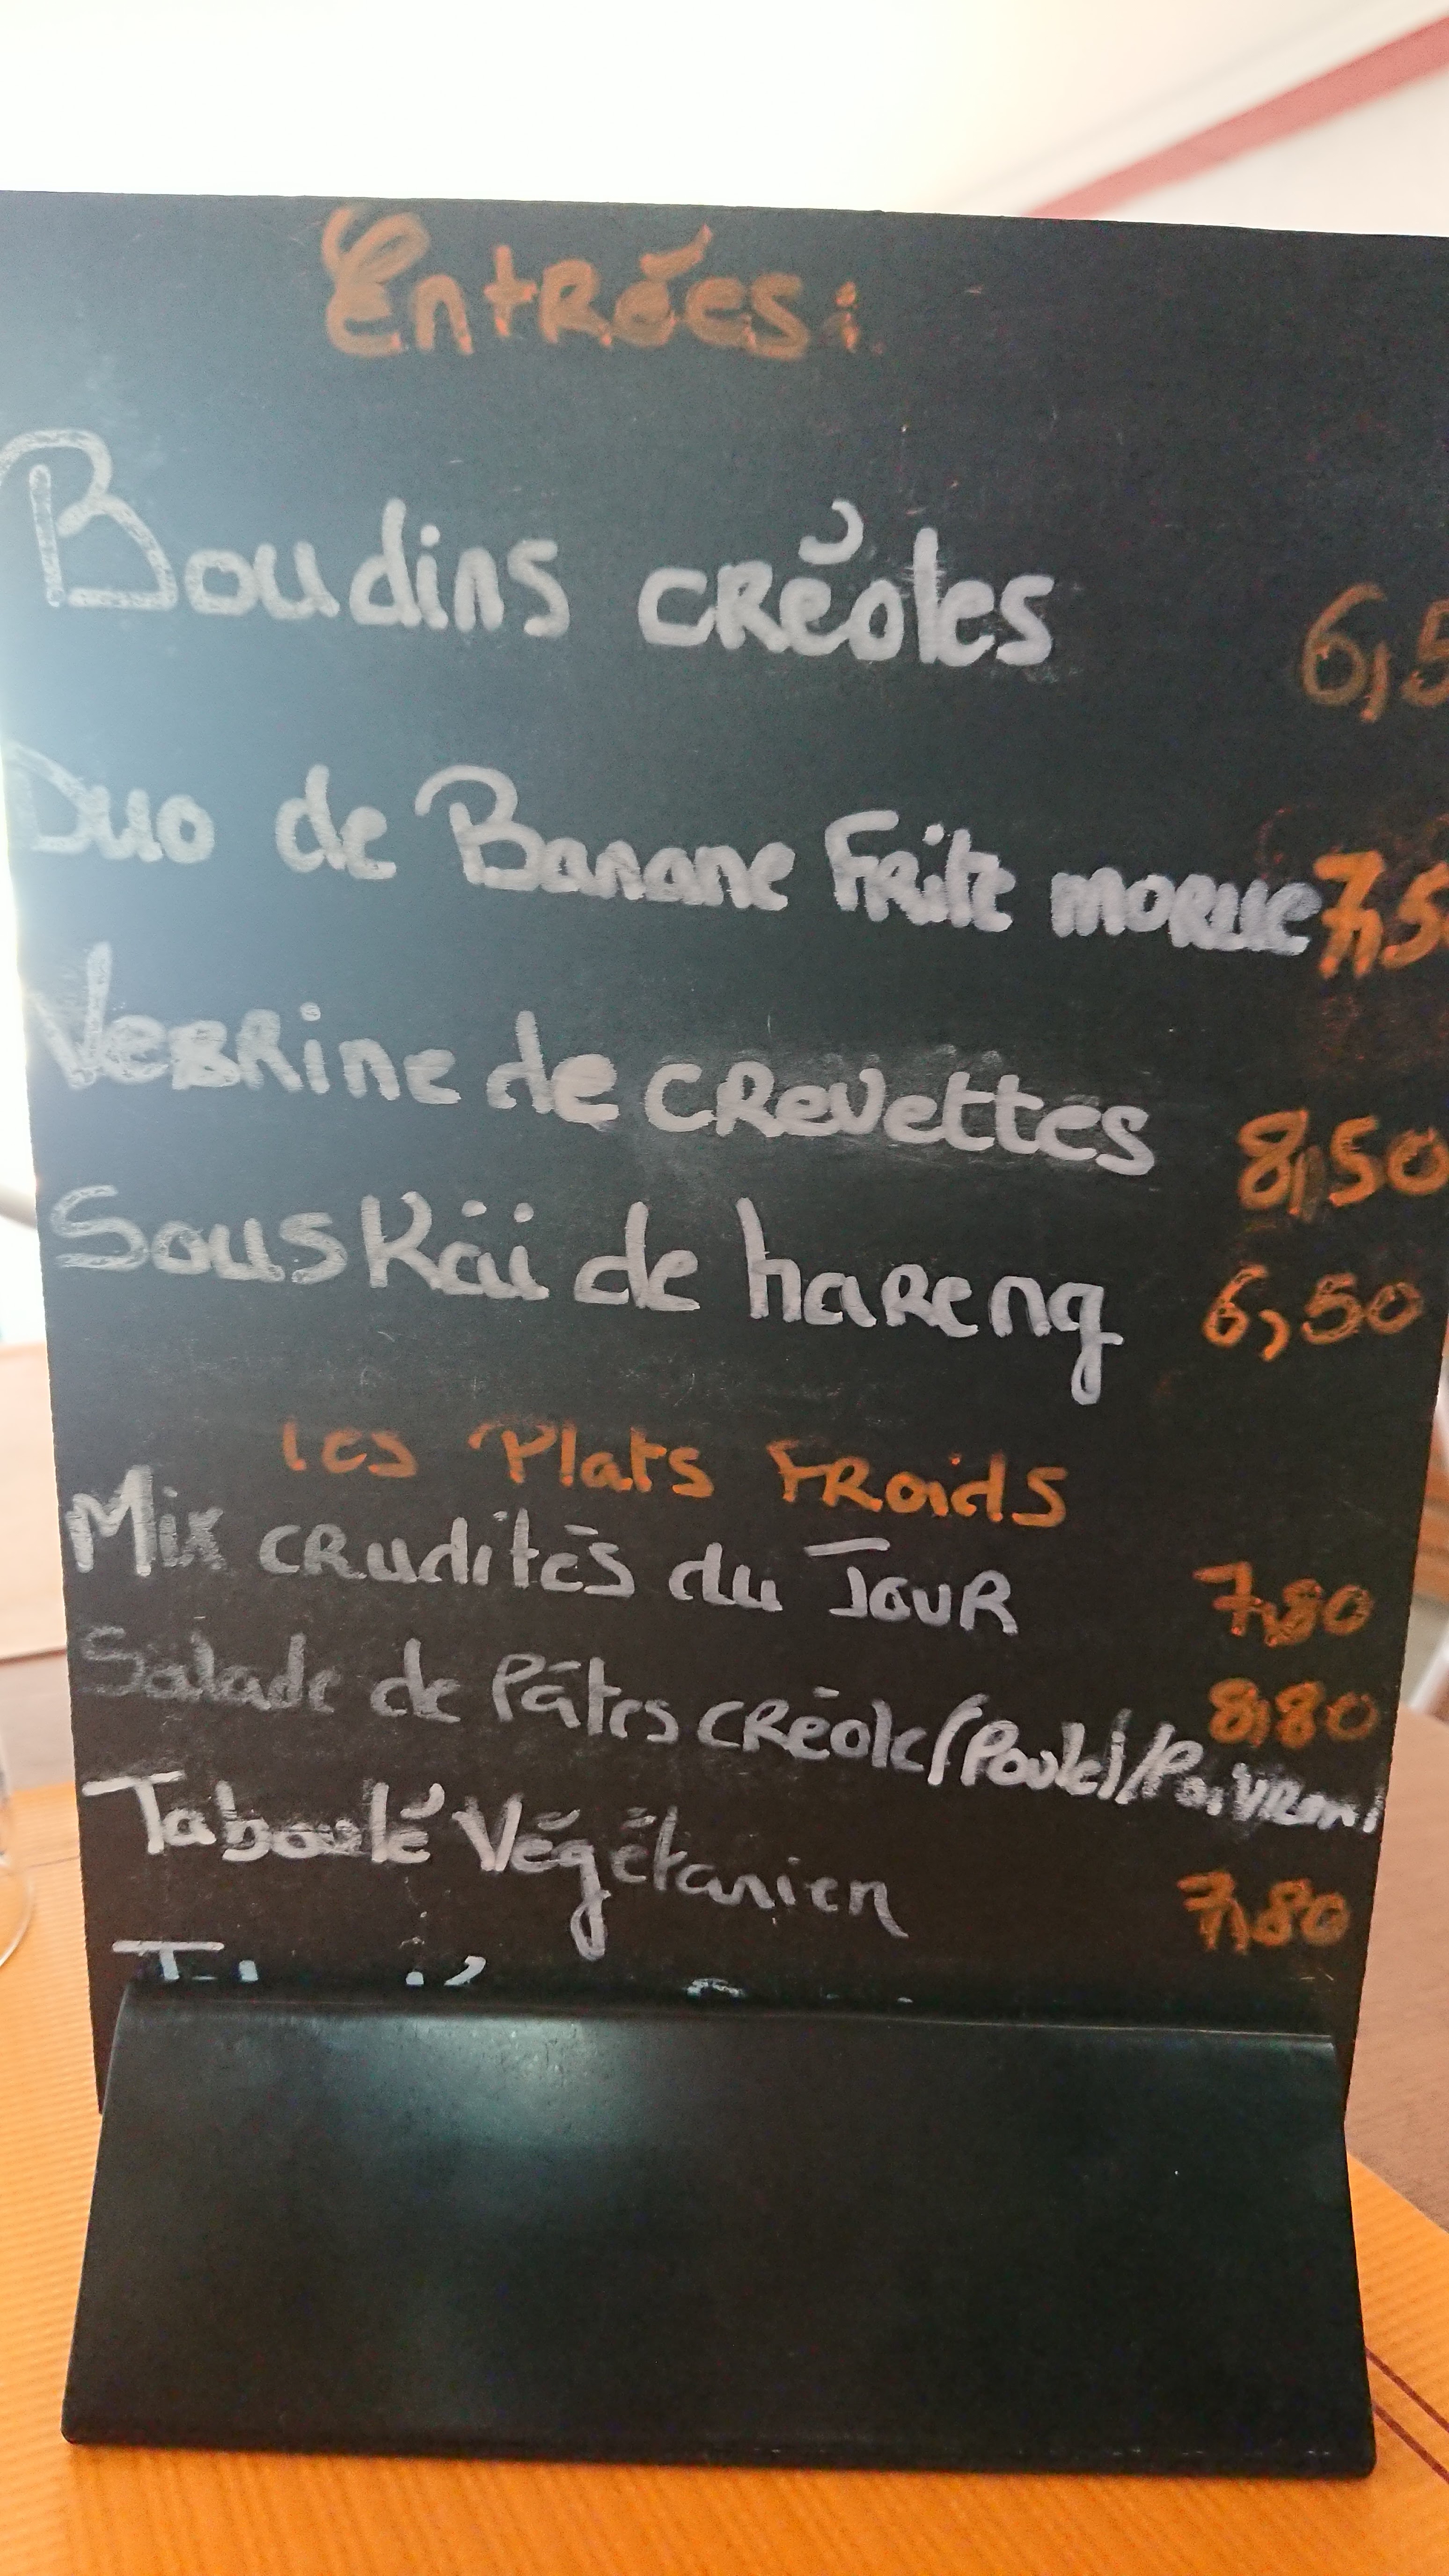 Entrées:
Boudins créoles 6,5
Duo de Banane Frite morue 7,5
Verrine de crevettes 8,50
Souskaï de hareng 6,50
les Plats Froids
Mix crudités du Jour 7,80
Salade de Pâtes créole (Poulet)/Poivron 8,80
Taboulé Végétarien 7,80